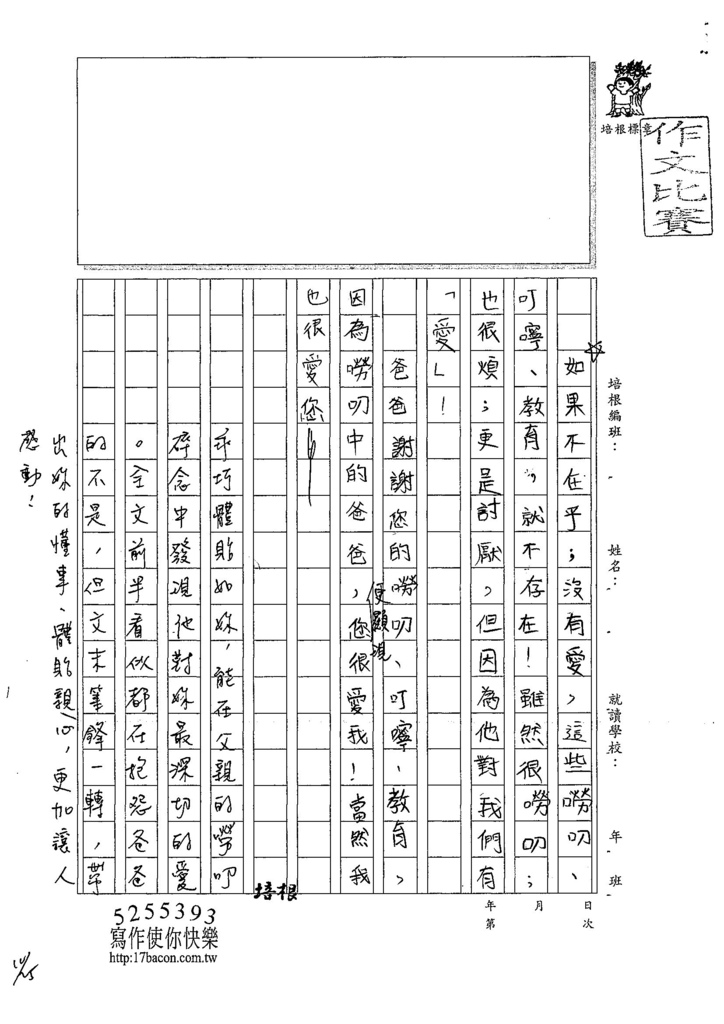 作文比賽
培根標章
培根編班：
姓名：
就讀學校：
年 班
如果不在乎；沒有愛，這些嘮叨、
叮嚀、教育，就不存在！雖然很嘮叨；
也很煩；更是討厭，但因為他對我們有
「愛」！
爸爸謝謝您的嘮叨、叮嚀、教育，
因為嘮叨中的爸爸，您很愛我！當然我
便顯現
也很愛您！
乖巧體貼如妳，能在父親的嘮叨
碎念中發現他對妳最深切的愛
。全文前半看似都在抱怨爸爸
的不是，但文末筆鋒一轉，帶
出妳的懂事、體貼親心，更加讓人
感動！
培根
年 月 日
第 次
5255393
寫作使你快樂
http:17bacon.com.tw